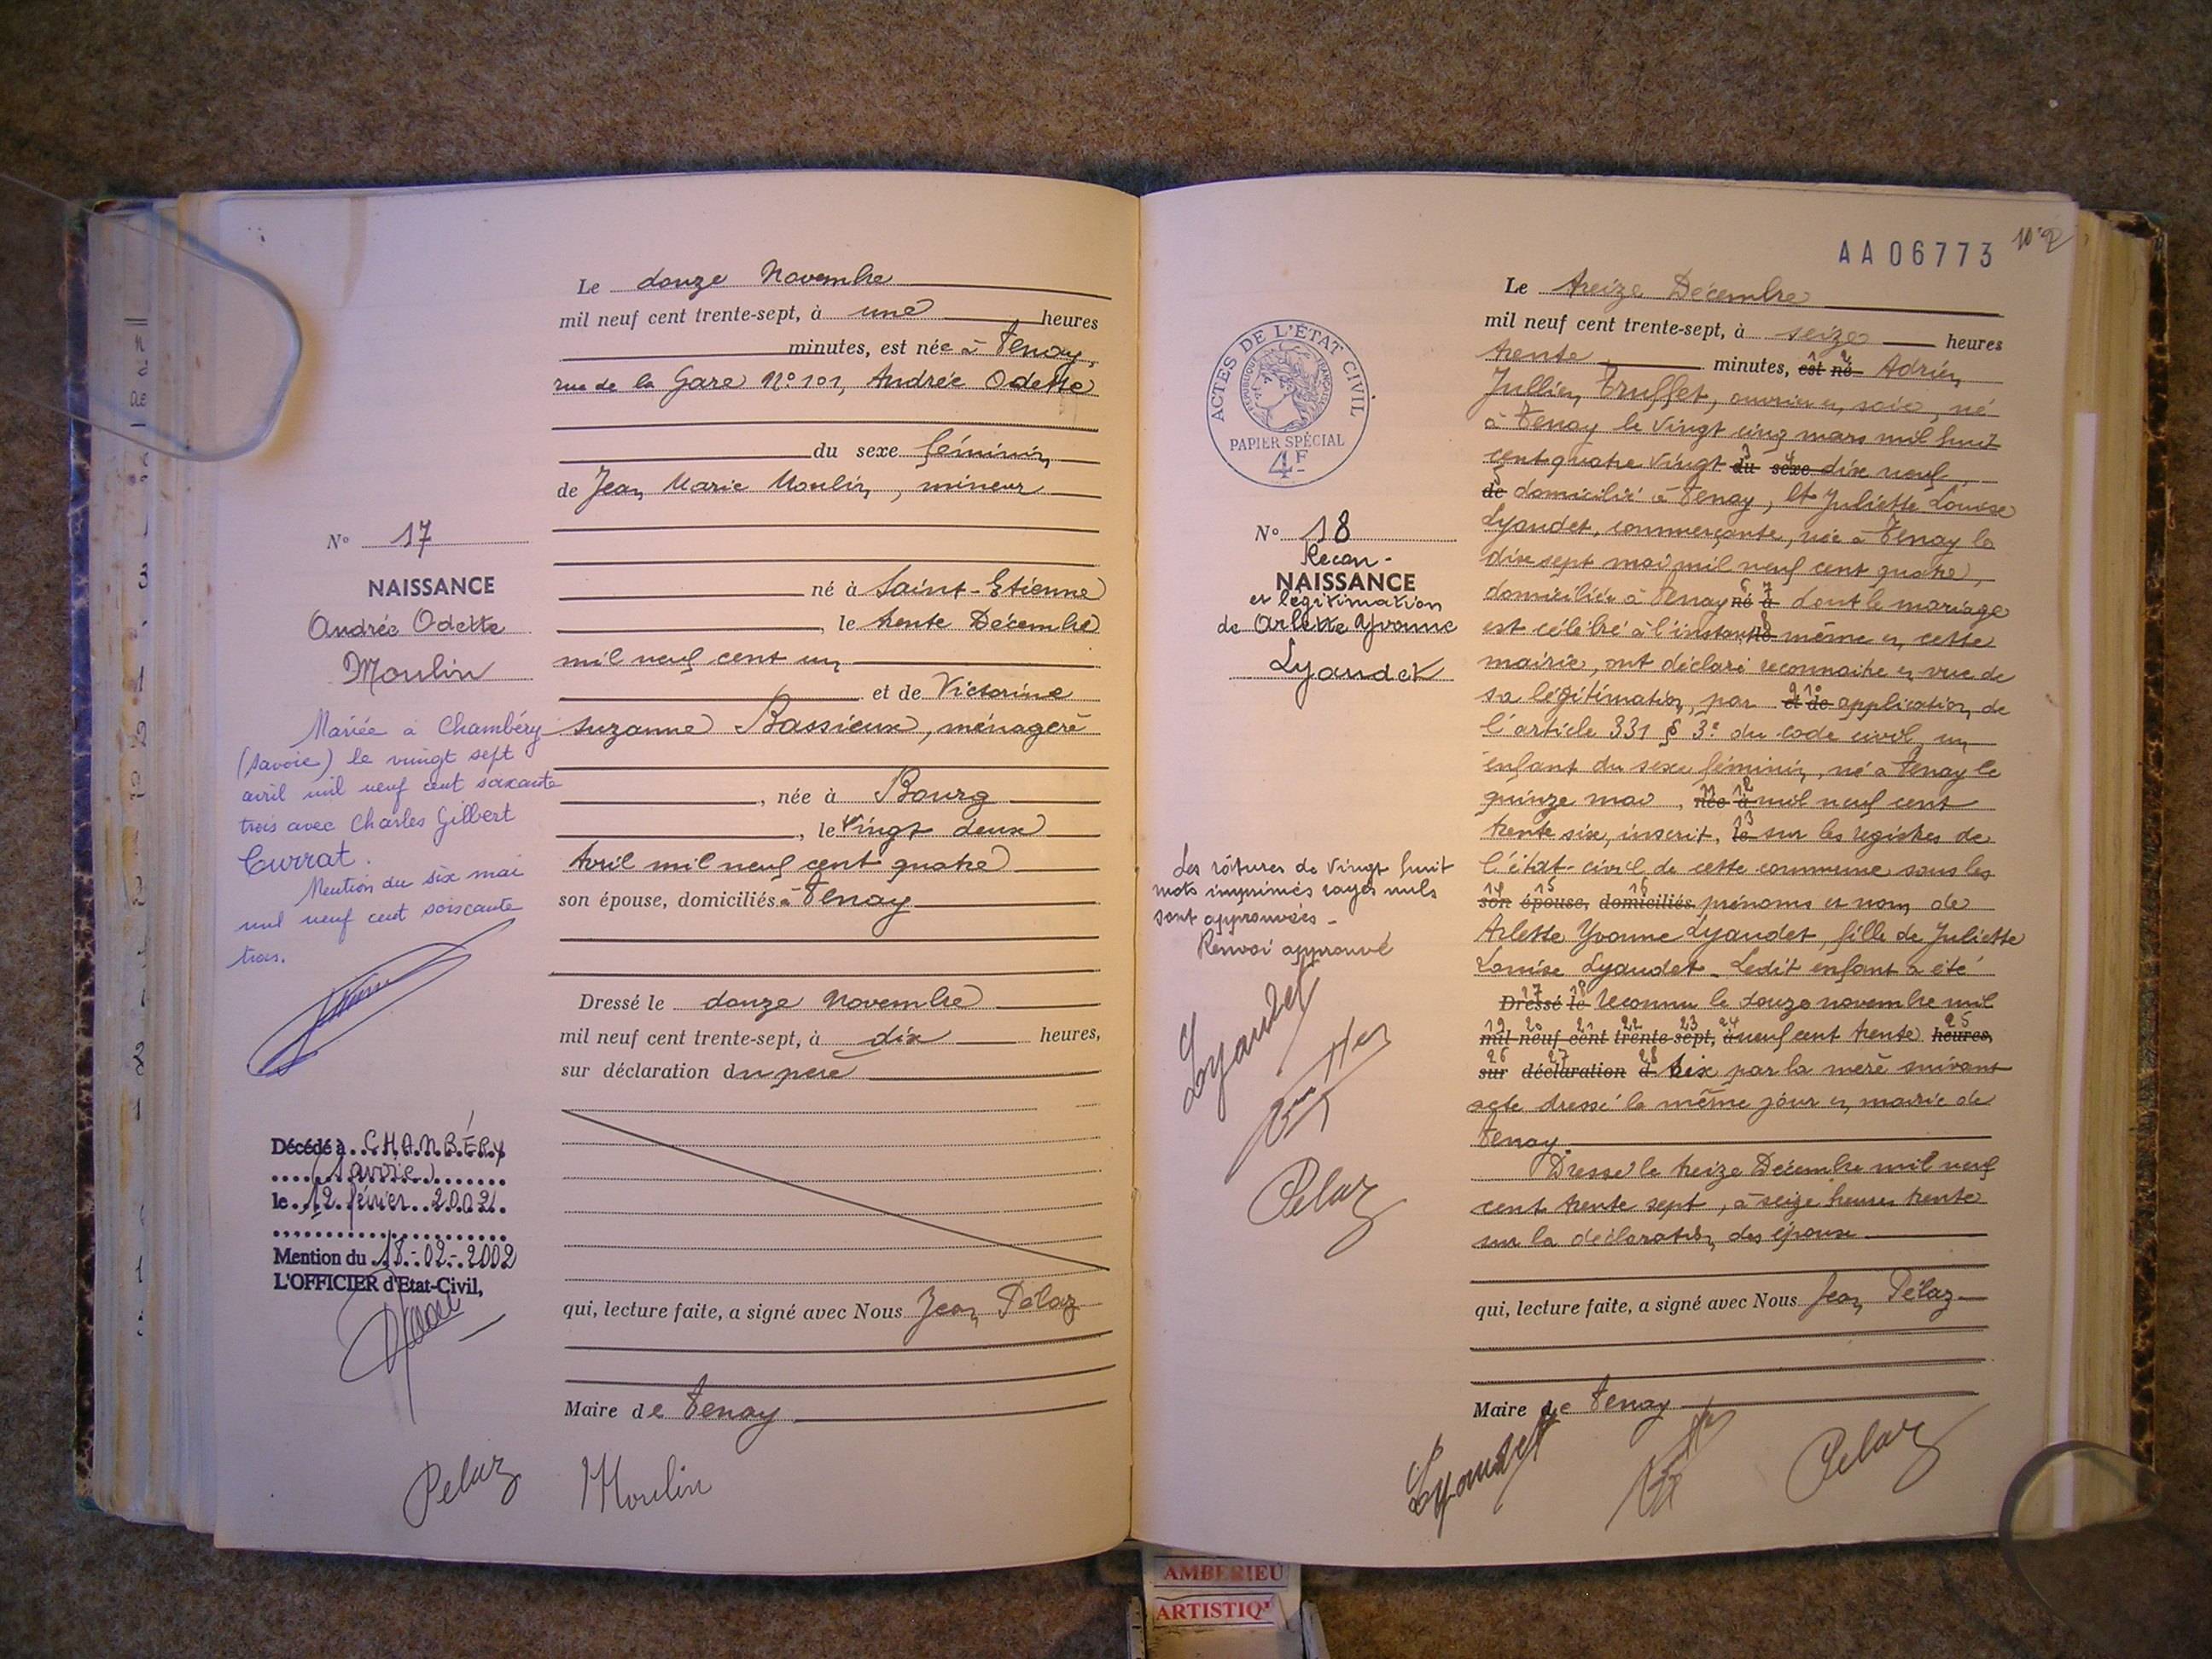 Le douze Novembre
mil neuf cent trente-sept, à une heures
minutes, est née à Tenay,
rue de la Gare N° 101, Andrée Odette
du sexe féminin
de Jean Marie Moulin, mineur
né à Saint-Etienne
, le trente Décembre
mil neuf cent un
et de Victorine
Suzanne Bassieux, ménagère
, née à Bourg
, le vingt deux
Avril mil neuf cent quatre
son épouse, domiciliés à Tenay
Dressé le douze Novembre
mil neuf cent trente-sept, à dix heures,
sur déclaration du père
qui, lecture faite, a signé avec Nous Jean Pélaz
Maire de Tenay
Pelaz Moulin
N° 17
NAISSANCE
Andrée Odette
Moulin
Mariée à Chambéry
(Savoie) le vingt sept
avril mil neuf cent soixante
trois avec Charles Gilbert
Currat.
Mention du six mai
mil neuf cent soixante
trois.
Décédé à CHAMBÉRY
(Savoie)
le 12 février 2002
Mention du 18-02-2002
L'OFFICIER d'Etat-Civil,
AA06773
ACTES DE L'ÉTAT CIVIL
RÉPUBLIQUE FRANÇAISE
PAPIER SPÉCIAL
4F
N° 18
Recon-
NAISSANCE
et légitimation
de Arlette Yvonne
Lyaudet
Les ratures de vingt huit
mots imprimés rayés nuls
sont approuvées -
Renvoi approuvé
Lyaudet
Pelaz
Le treize Décembre
mil neuf cent trente-sept, à seize heures
trente minutes, est né Adrien
Jullien Truffet, ouvrier en soie, né
à Tenay le vingt cinq mars mil huit
cent quatre vingt du sexe dix neuf,
de domicilié à Tenay, et Juliette Louise
Lyaudet, commerçante, née à Tenay le
dix sept mai mil neuf cent quatre,
domiciliée à Tenay né à dont le mariage
est célébré à l'instant le même en cette
mairie, ont déclaré reconnaitre en vue de
sa légitimation, par et de application de
l'article 331 § 3° du code civil, un
enfant du sexe féminin, né à Tenay le
quinze mai, née à mil neuf cent
trente six, inscrit, le sur les registres de
l'état-civil de cette commune sous les
son épouse, domiciliés prénoms et nom de
Arlette Yvonne Lyaudet, fille de Juliette
Louise Lyaudet. Ledit enfant a été
Dressé le reconnu le douze novembre mil
mil neuf cent trente-sept, à neuf cent trente heures,
sur déclaration d six par la mère suivant
acte dressé le même jour en mairie de
Tenay.
Dressé le treize Décembre mil neuf
cent trente sept, à seize heures trente
sur la déclaration des époux
qui, lecture faite, a signé avec Nous Jean Pélaz
Maire de Tenay
Lyaudet Pelaz
AMBERIEU
ARTISTIQ'